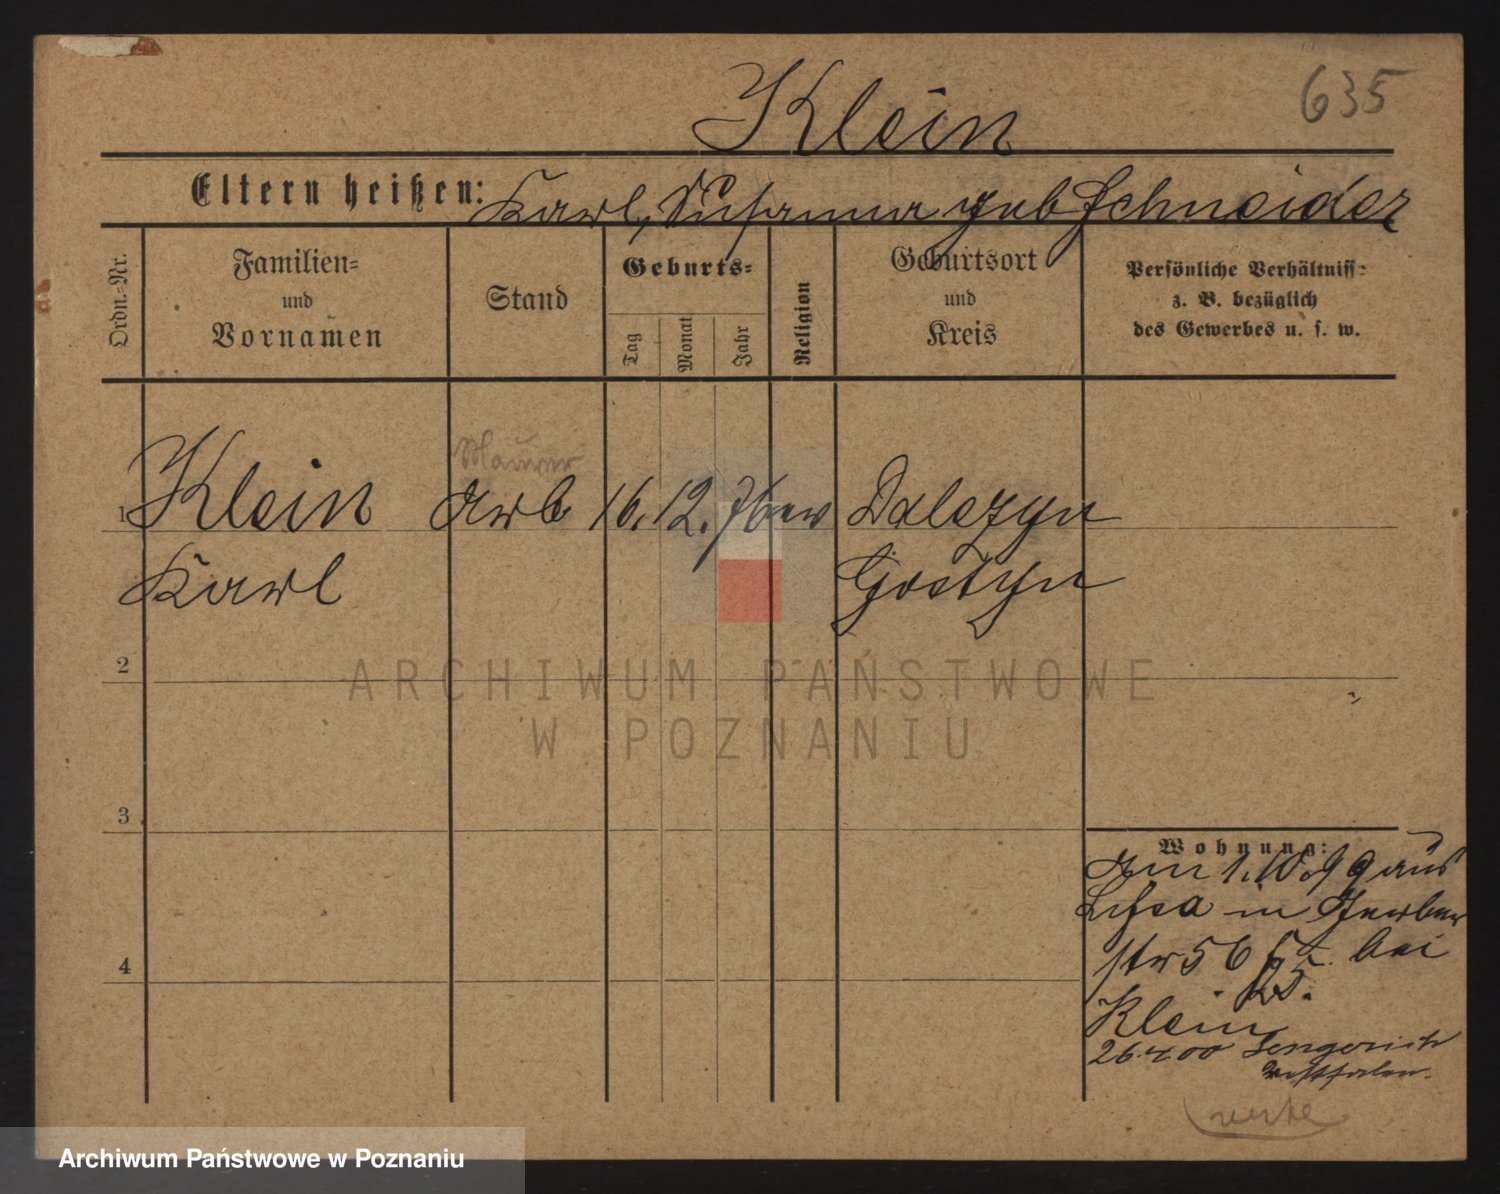 635
Klein
Eltern heißen: Karl, Susanna geb Schneider
Ordn.-Nr.
Familien-
und
Vornamen
Stand
Geburts-
Tag
Monat
Jahr
Religion
Geburtsort
und
Kreis
Persönliche Verhältniss-
z. B. bezüglich
des Gewerbes u. s. w.
Maurer
1 Klein Arb 16. 12. 76 ev Dalezyn
Karl Gostyn
2
ARCHIWUM PAŃSTWOWE
W POZNANIU
3
Wohnung:
Am 1.10.99 aus
Lissa in Gerber
str 56 bei
25.
Klein
26.4.00 Lengerich
Westfalen.
4
Archiwum Państwowe w Poznaniu